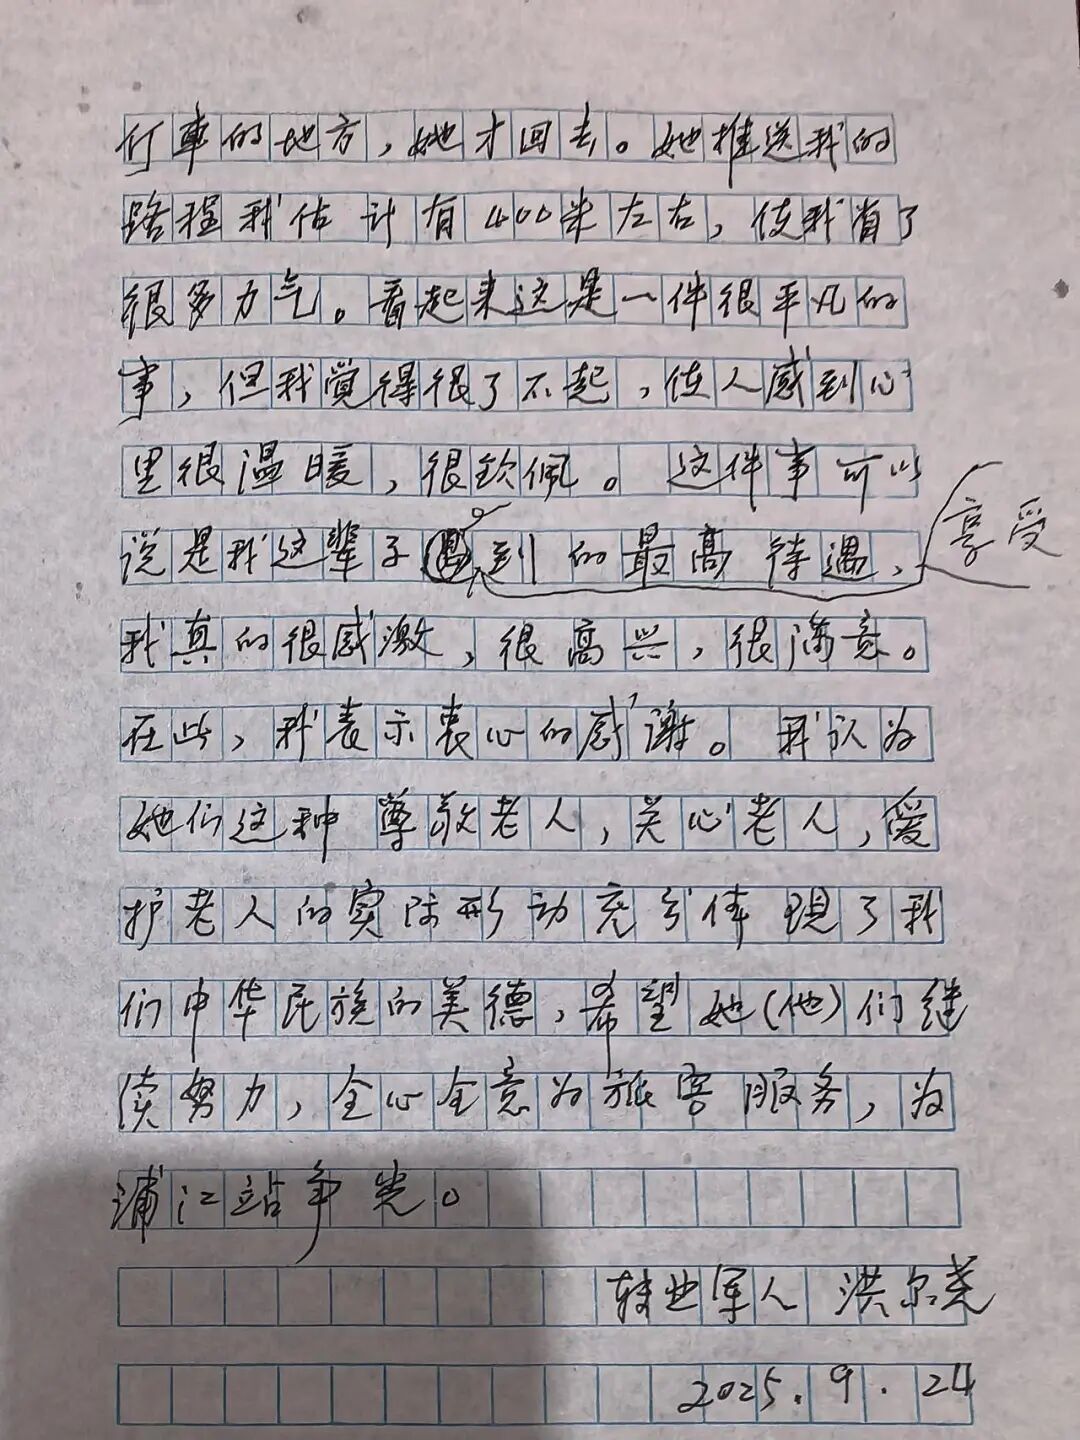 打車的地方，她才回去。她推送我的
路程我估计有400米左右，使我省了
很多力气。看起来这是一件很平凡的
事，但我觉得很了不起，使人感到心
里很温暖，很钦佩。这件事可以
说是我这辈子到的最高待遇，
享受
我真的很感激，很高兴，很满意。
在此，我表示衷心的感谢。我认为
她们这种尊敬老人，关心老人，爱
护老人的实际形动充分体現了我
们中华民族的美德，希望她(他)们继
续努力，全心全意为旅客服务，为
浦江站争光。
转业军人 洪尔尧
2025.9.24